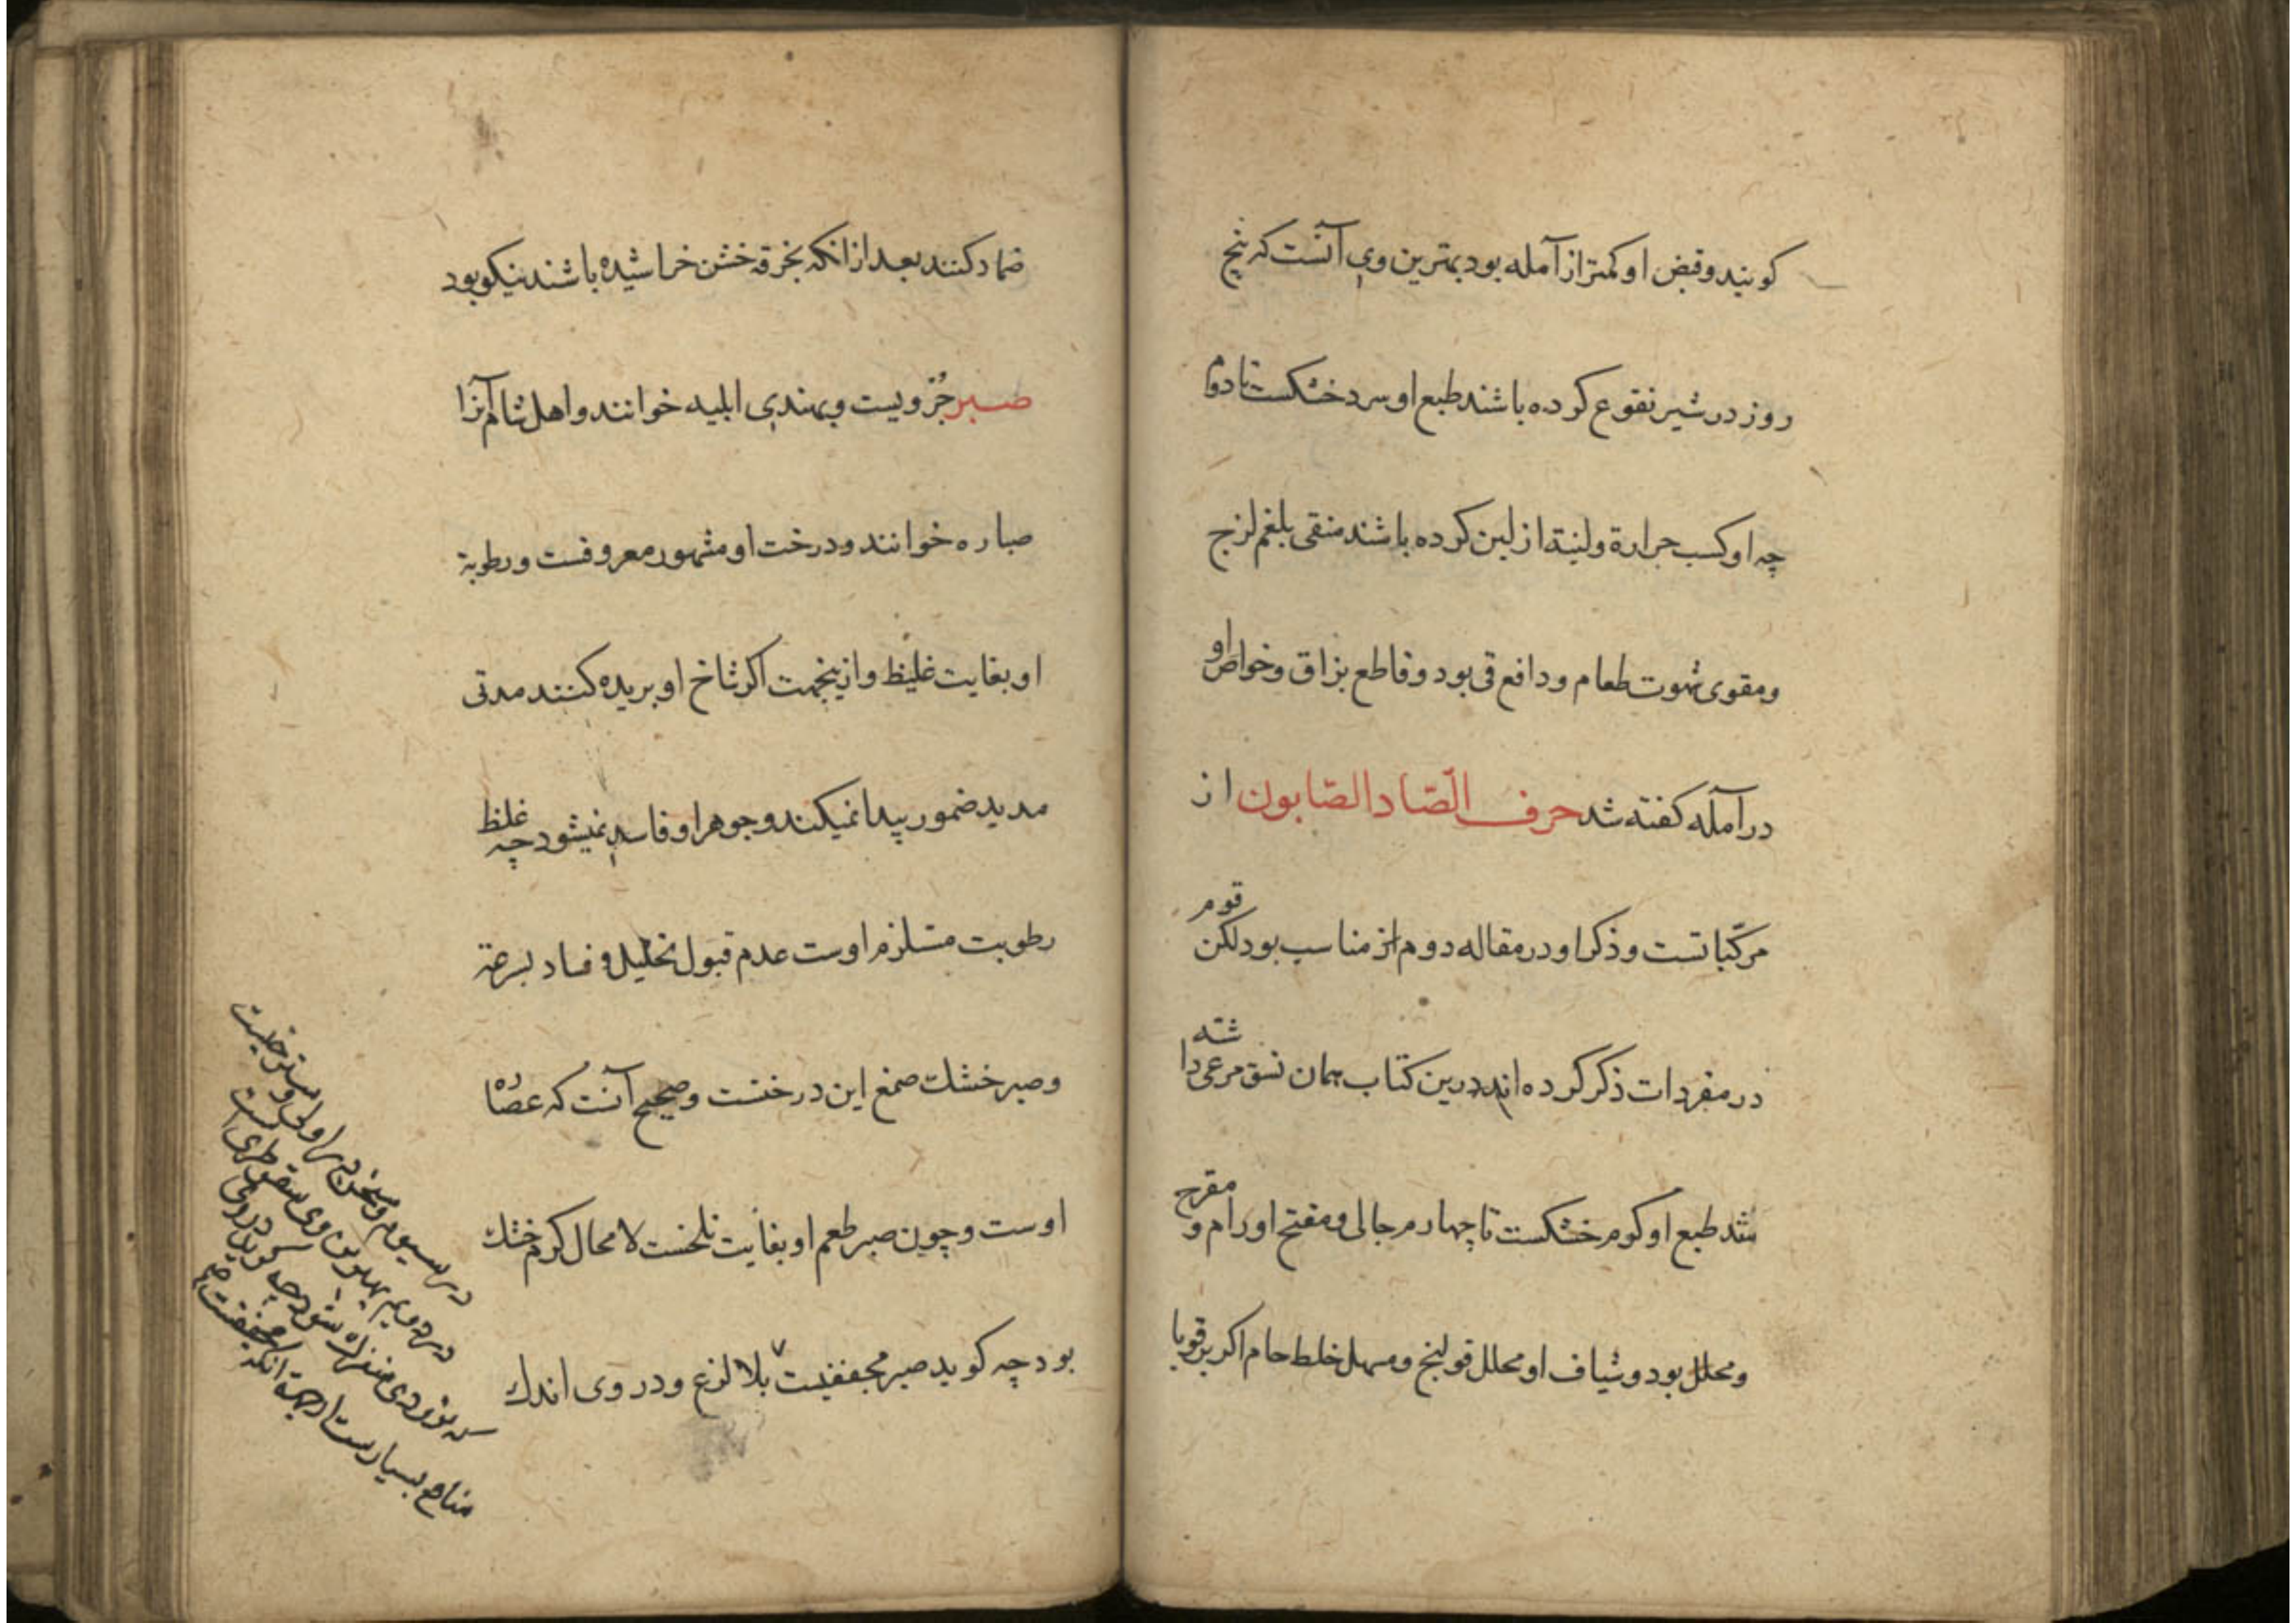 کویند وقبض او کمتر از آمله بود بهترین وی آنست که پنج
روز در شیر نقوع کرده باشند طبع او سرد خشکست تا دوم
چه او کسب حرارة ولینة از لبن کرده باشند منقی بلغم لزج
ومقوی شهوت طعام ودافع قی بود وقاطع بزاق وخواص او
در آمله کفته شد حرف الصّاد الصّابون از
مرکّباتست وذکر او در مقاله دوم از مناسب بود لکن قوم
در مفردات ذکر کرده اند درین کتاب همان نسق مرعی داشته
شد طبع او کرم خشکست تا چهارم جالی ومفتح اورام و مقرح
ومحلل بود وشیاف او محلل قولنج ومسهل خلط خام اکر بر قوبا
ضماد کنند بعد از انکه بخرقه خشن خراشیده باشند نیکو بود
صبر جُزویست وبهندی ایلیه خوانند واهل شام آنرا
صباره خوانند ودرخت او مشهور معروفست ورطوبة
او بغایت غلیظ وازینجهت اکر شاخ او بریده کنند مدتی
مدید ضمور پیدا نمیکند وجوهر او فاسد نمیشود چه غلظ
رطوبت مستلزم اوست عدم قبول تحلیل و فساد بسرعة
وصبر خشك صمغ این درختست وصحیح آنست که عصاره
اوست وچون صبر طعم او بغایت تلخست لا محال کرم خشك
بود چه کوید صبر مجففیست بلا لزع ودر وی اندك
در سیوم
در دویم بهترین وی سقوطریست
که بزودی شود چه کوید در وی
منافع بسیارست انکه